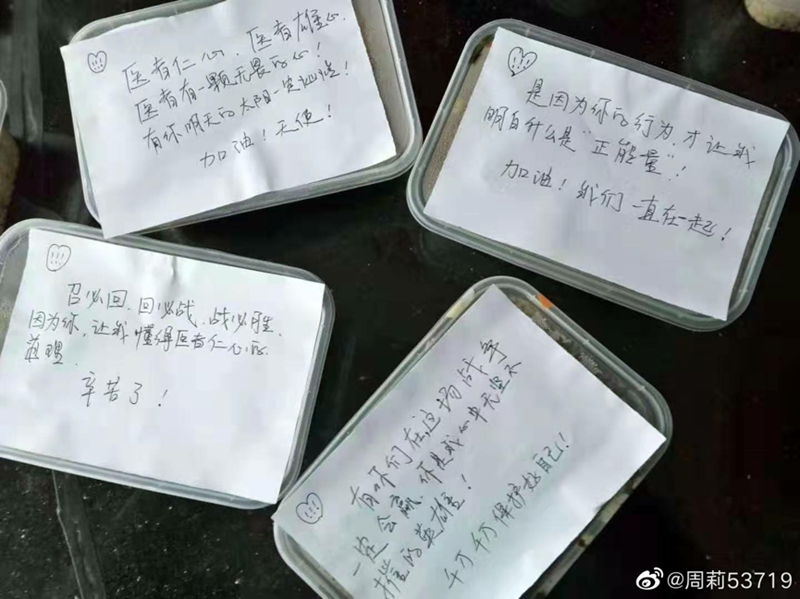 医者仁心、医者雄心.
医者有一颗无畏的心!
有你明天的太阳一定
加油! 天使!
是因为你的行为,才让我
明白什么是“正能量”!
加油! 我们一直在一起!
召必回、回必战、战必胜.
因为你,让我懂得医者仁心的
真理.
辛苦了!
有你们在这场战争
一定会赢、你是我心中无坚不
摧的英雄!
千万千万保护好自己!
@周莉53719